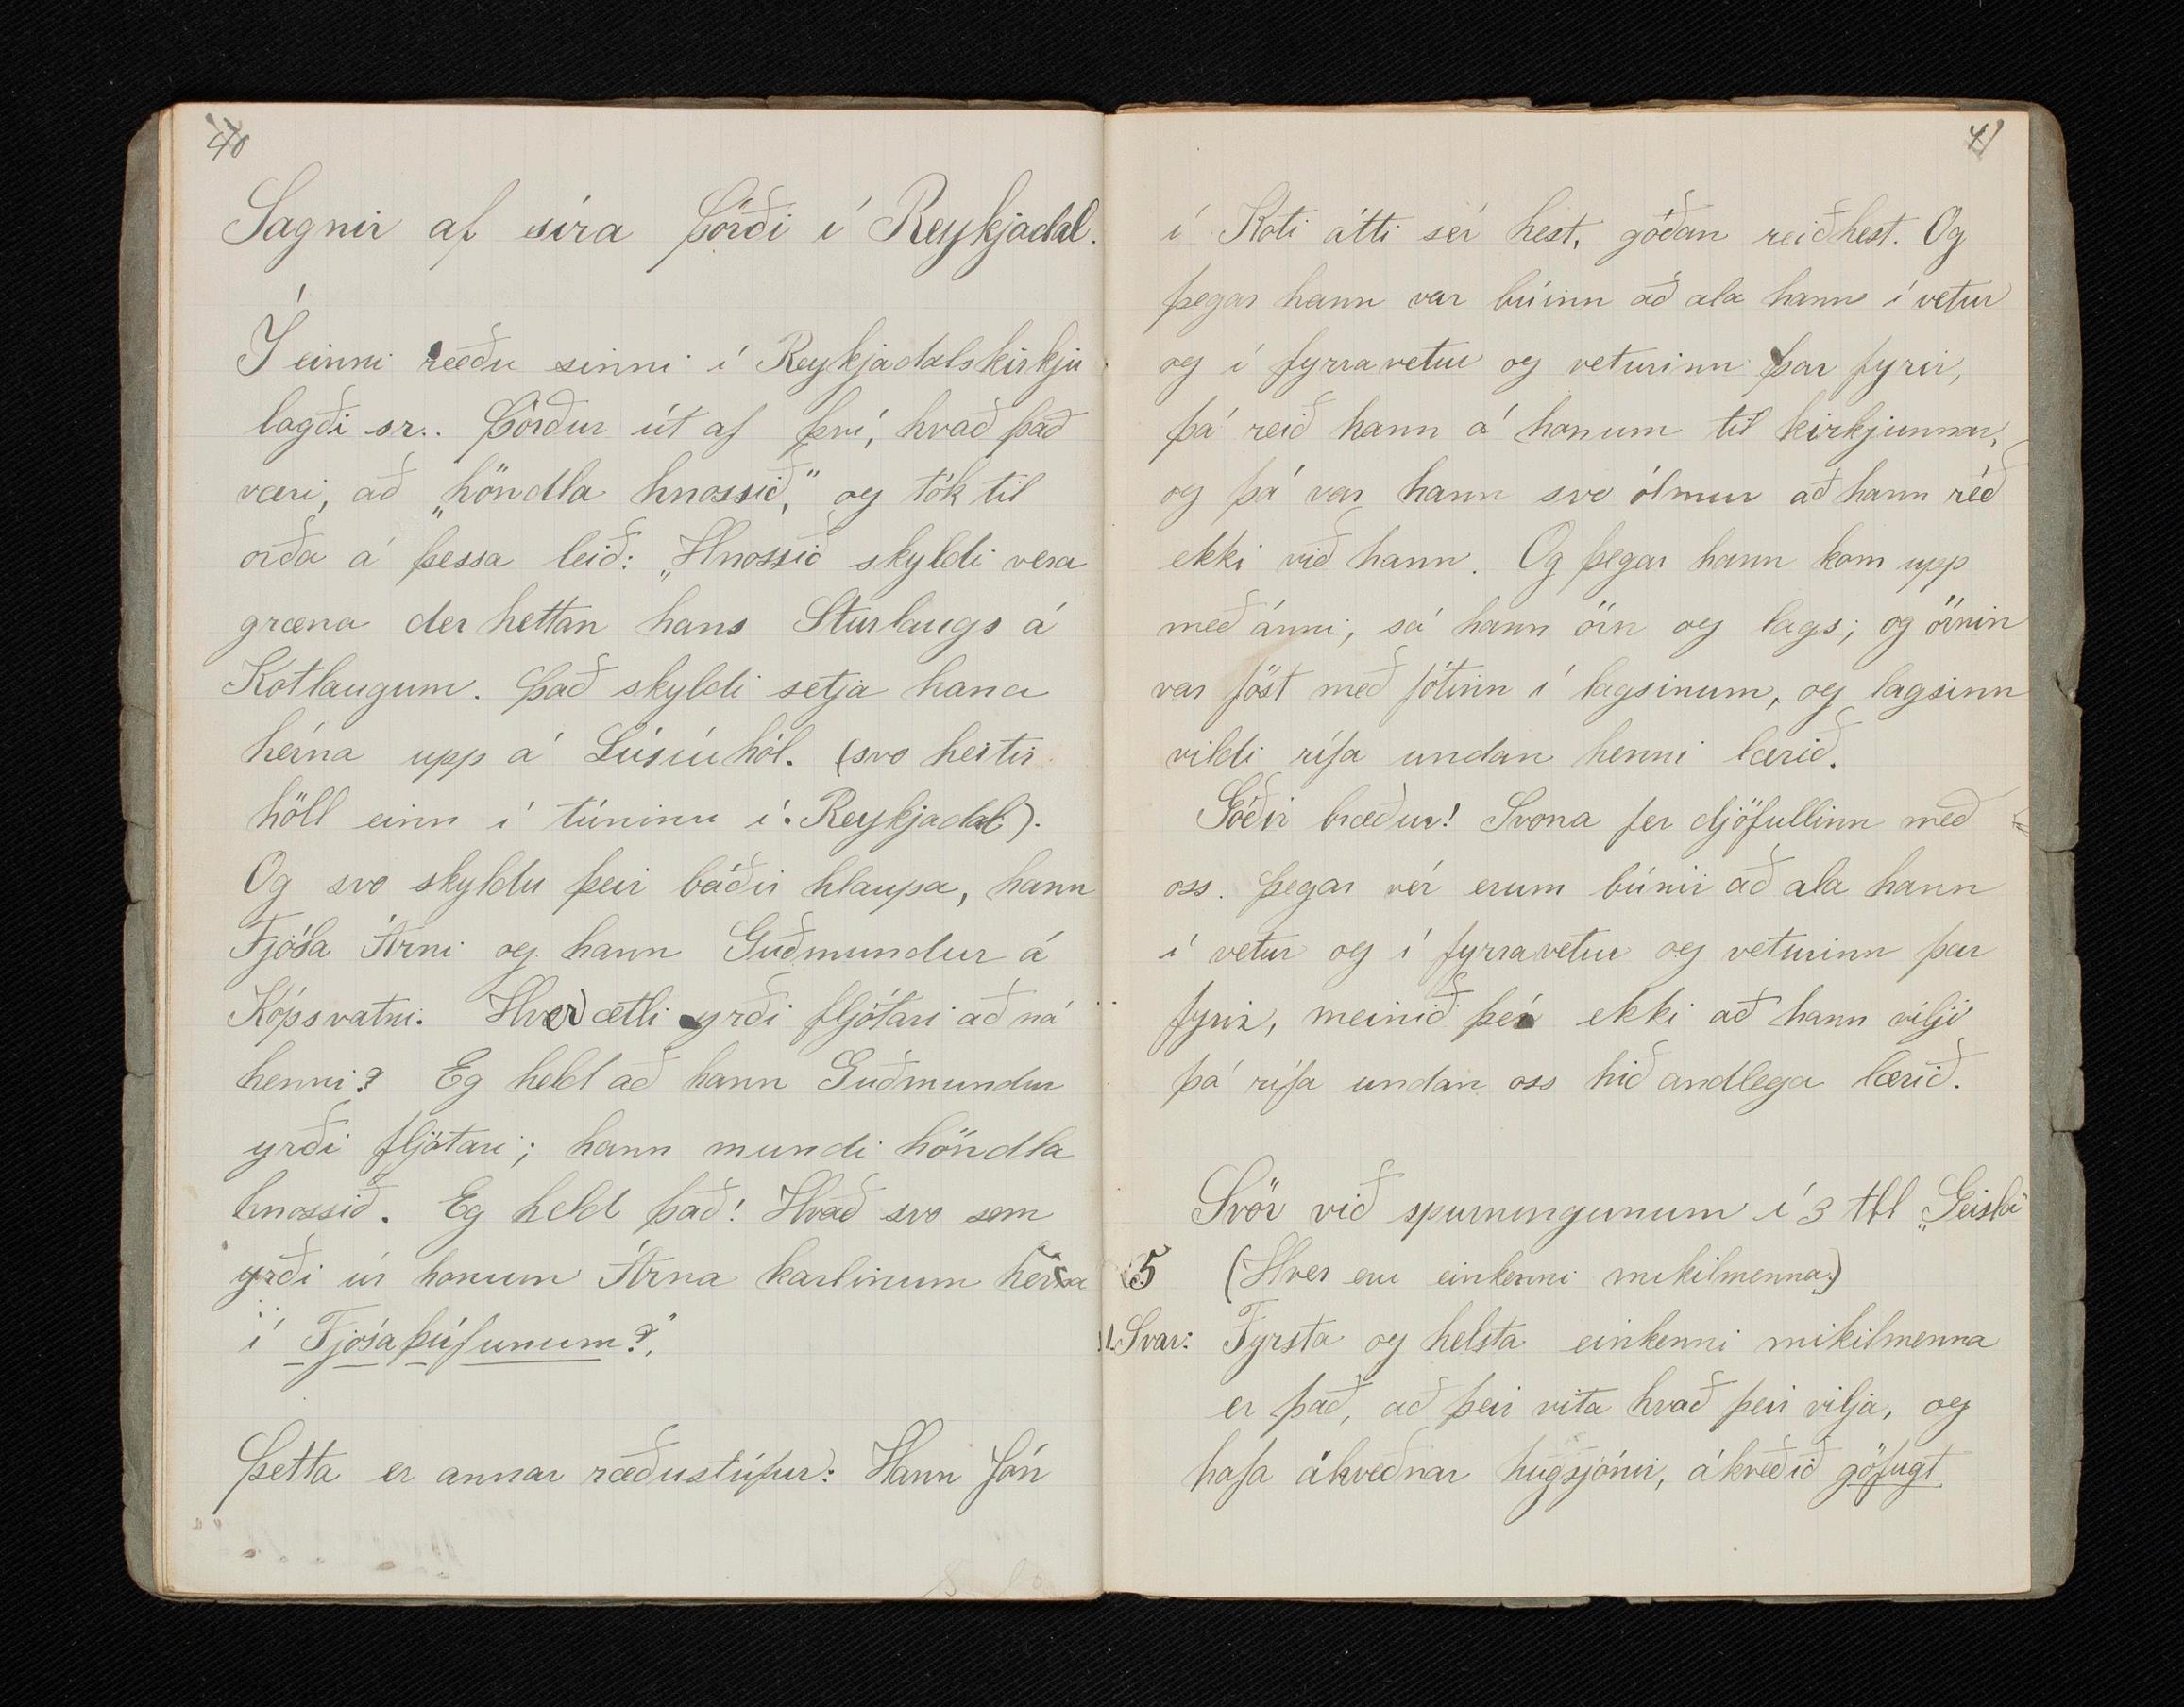 40
Sagnir af síra Þórði í Reykjadal.
Í einni ræðu sinni í Reykjadalskirkju
lagði sr. Þórður út af því, hvað það
væri, að „höndla hnossið," og tók til
orða á þessa leið: „Hnossið skyldi vera
græna der hettan hans Sturlaugs á
Kotlaugum. Það skyldi setja hana
hérna upp á Lúsíuhól. (svo heitir
hóll einn í túninu í Reykjadal).
Og svo skyldu þeir báðir hlaupa, hann
Fjósa Árni og hann Guðmundur á
Kópsvatni. Hver ætli yrði fljótari að ná
henni? Eg held að hann Guðmundur
yrði fljótari; hann mundi höndla
hnossið. Eg held það! Hvað svo sem
yrði úr honum Árna karlinum hérna
í Fjósaþúfunum?"
Þetta er annar ræðustúfur: Hann Jón
41
í Koti átti sér hest, góðan reiðhest. Og
þegar hann var búinn að ala hann í vetur
og í fyrravetur og veturinn þar fyrir,
þá reið hann á honum til kirkjunnar,
og þá var hann svo ólmur að hann réð
ekki við hann. Og þegar hann kom upp
með ánni, sá hann örn og lags; og örnin
var föst með fótinn í lagsinum, og lagsinn
vildi rífa undan henni lærið.
Góðir bræður! Svona fer djöfullinn með
oss. Þegar vér erum búnir að ala hann
í vetur og í fyrravetur og veturinn þar
fyrir, meinið þér ekki að hann vilji
þá rífa undan oss hið andlega lærið.
Svör við spurningunum í 3 tbl „Geisla"
5 (Hver eru einkenni mikilmenna?)
Svar: Fyrsta og helsta einkenni mikilmenna
er það, að þeir vita hvað þeir vilja, og
hafa ákveðnar hugsjónir, ákveðið göfugt